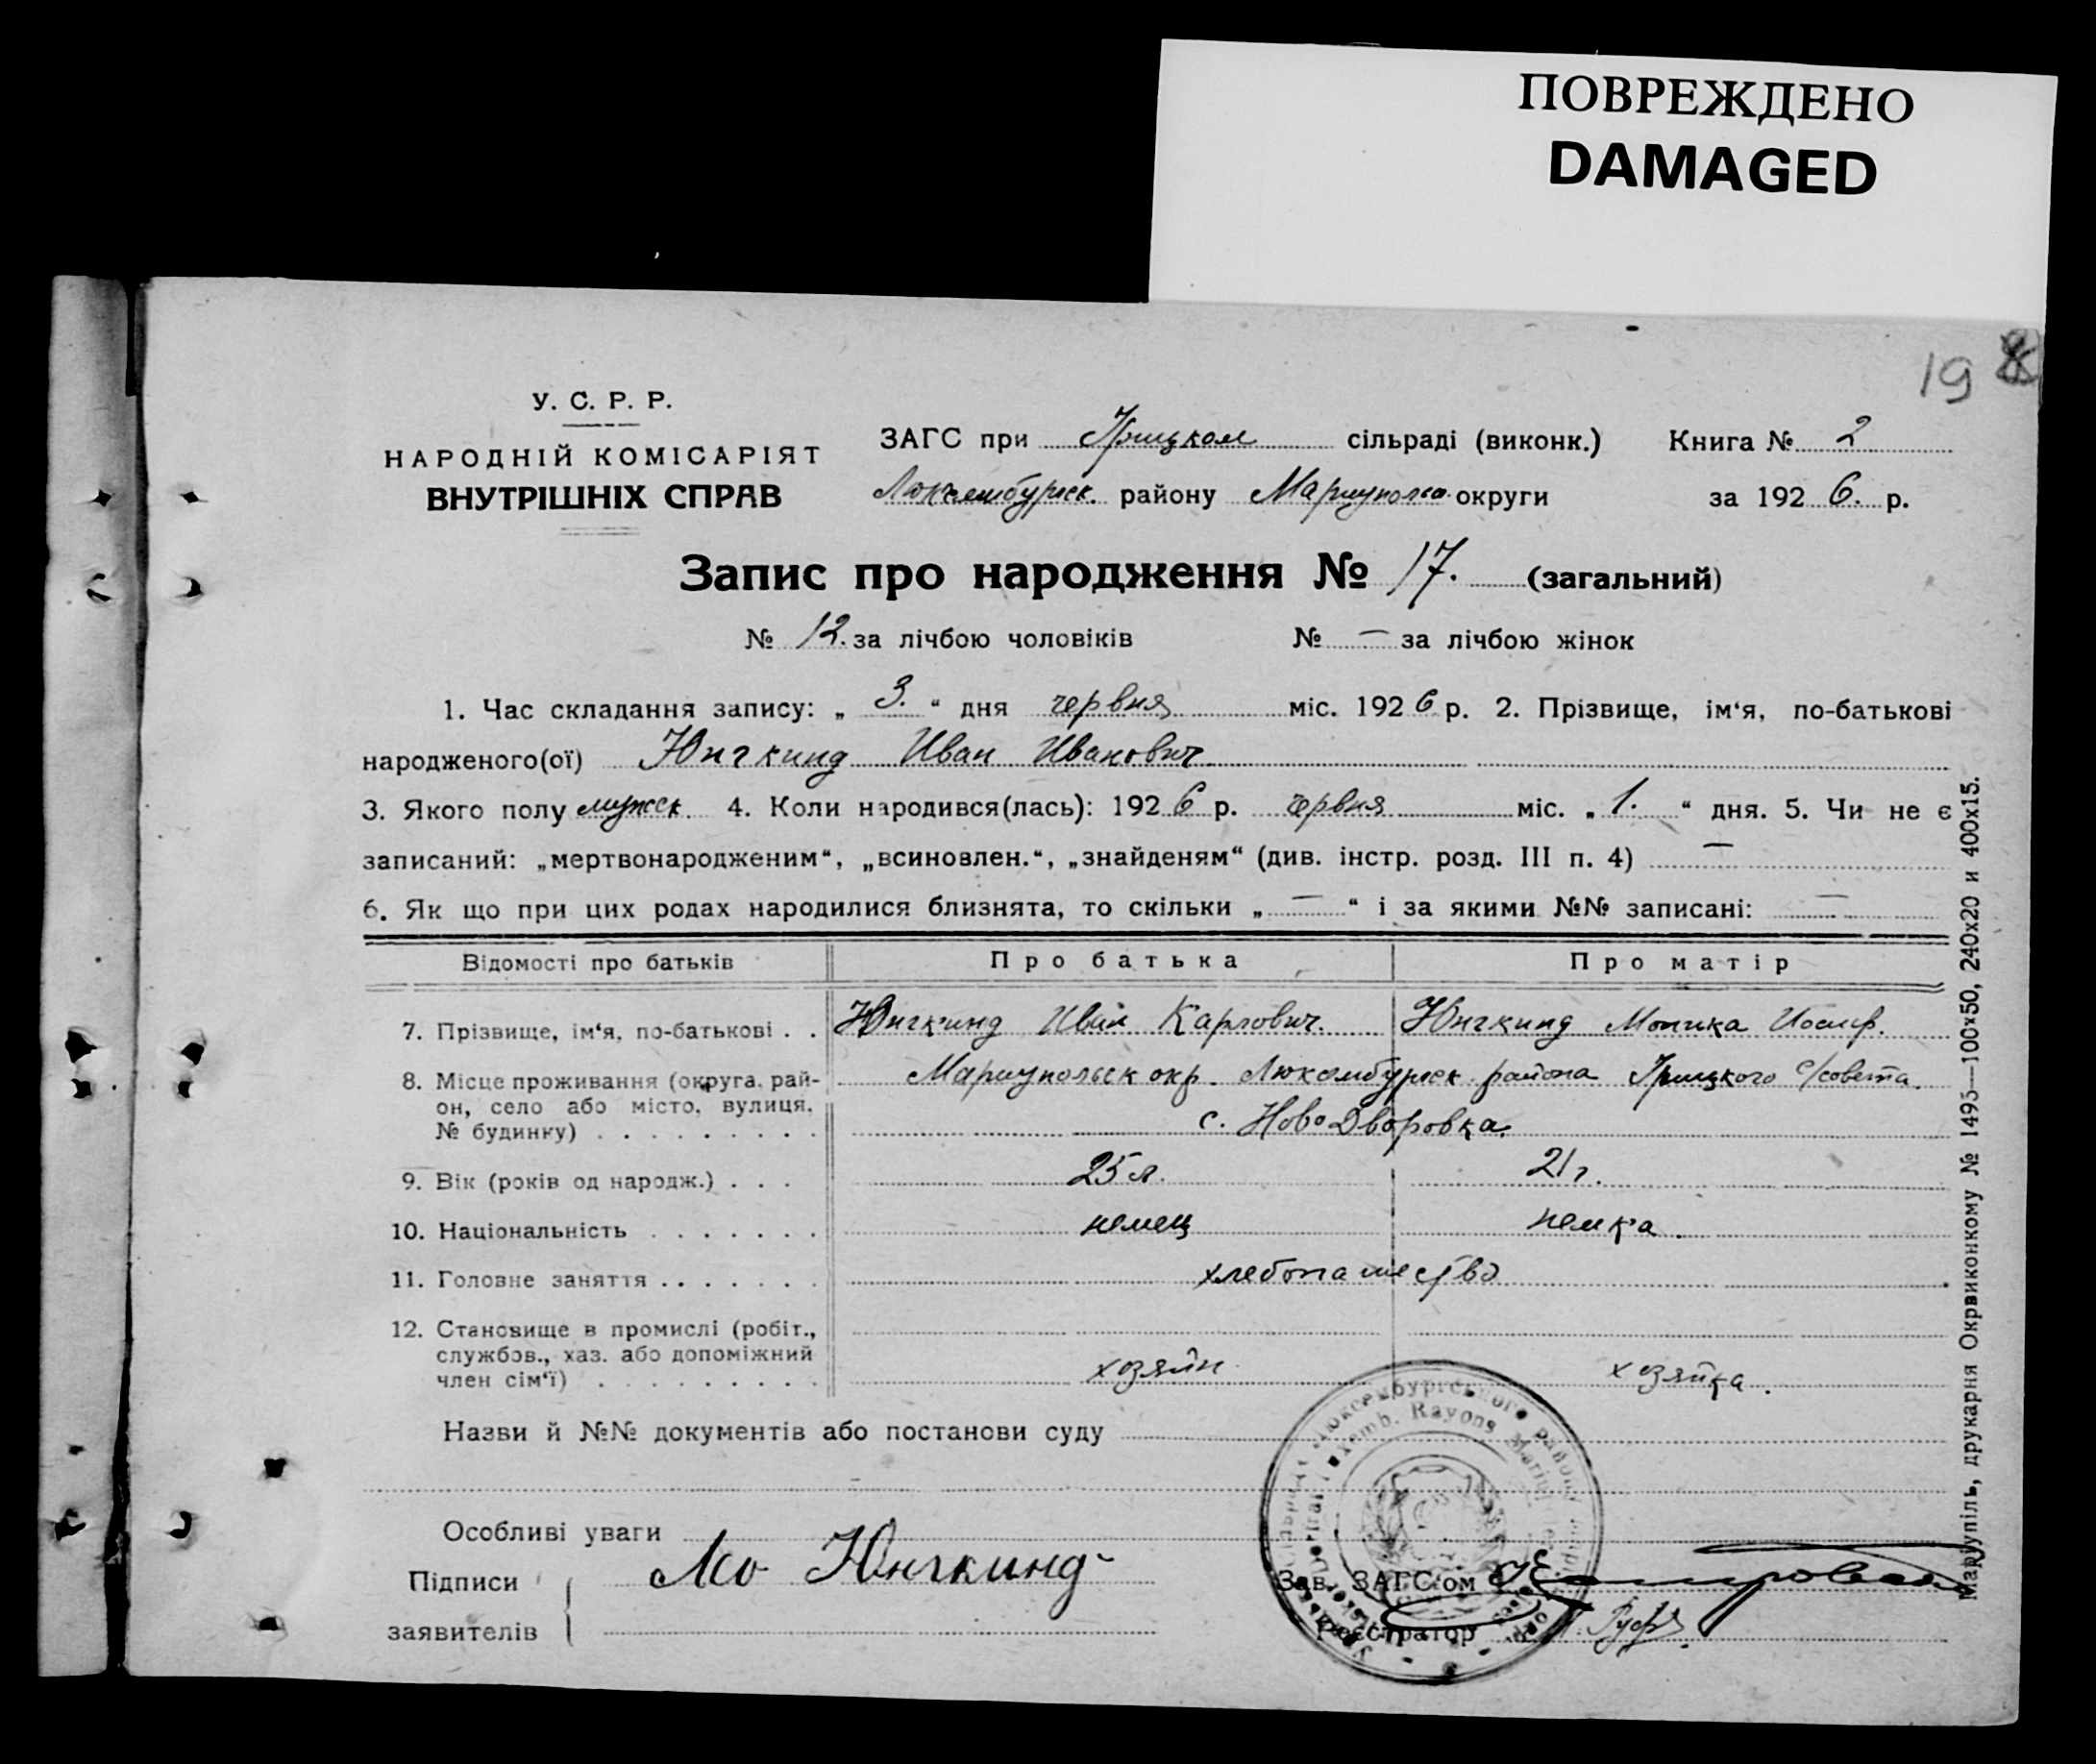 ПОВРЕЖДЕНО
DAMAGED
19
У. С. Р. Р.
НАРОДНІЙ КОМІСАРІЯТ
ВНУТРІШНІХ СПРАВ
ЗАГС при сільраді (виконк.) Книга № 2
Люксембургск. району Мариупольс. округи за 1926. р.
Запис про народження № 17. (загальний)
№ 12. за лічбою чоловіків № — за лічбою жінок
1. Час складання запису: „ 3. “ дня червня міс. 1926 р. 2. Прізвище, ім‘я, по-батькові
народженого(ої) Юнгкинд Иван Иванович
3. Якого полу мужск. 4. Коли народився(лась): 1926 р. червня міс. „ 1. “ дня. 5. Чи не є
записаний: „мертвонародженим“, „всиновлен.“, „знайденям“ (див. інстр. розд. III п. 4) —
6. Як що при цих родах народилися близнята, то скільки „ — “ і за якими №№ записані: —
Відомості про батьків Про батька Про матір
7. Прізвище, ім‘я, по-батькові . . Юнгкинд Иван Карлович. Юнгкинд Моника Иосиф.
8. Місце проживання (округа, рай- Мариупольск окр. Люксембургск. района с/совета.
он, село або місто, вулиця,
№ будинку) . . . . . . . . . с. НовоДворовка.
9. Вік (років од народж.) . . . 25 л. 21 г.
10. Національність . . . . . . . немец немка.
11. Головне заняття . . . . . . . хлебопашество
12. Становище в промислі (робіт.,
службов., хаз. або допоміжний
член сім‘ї) . . . . . . . . . хозяин хозяйка.
Назви й №№ документів або постанови суду
Особливі уваги
Підписи Юнгкинд
заявителів
Зав. ЗАГС‘ом
Реєстратор
Маріупіль, друкарня Окрвиконкому № 1495—100х50, 240х20 и 400х15.